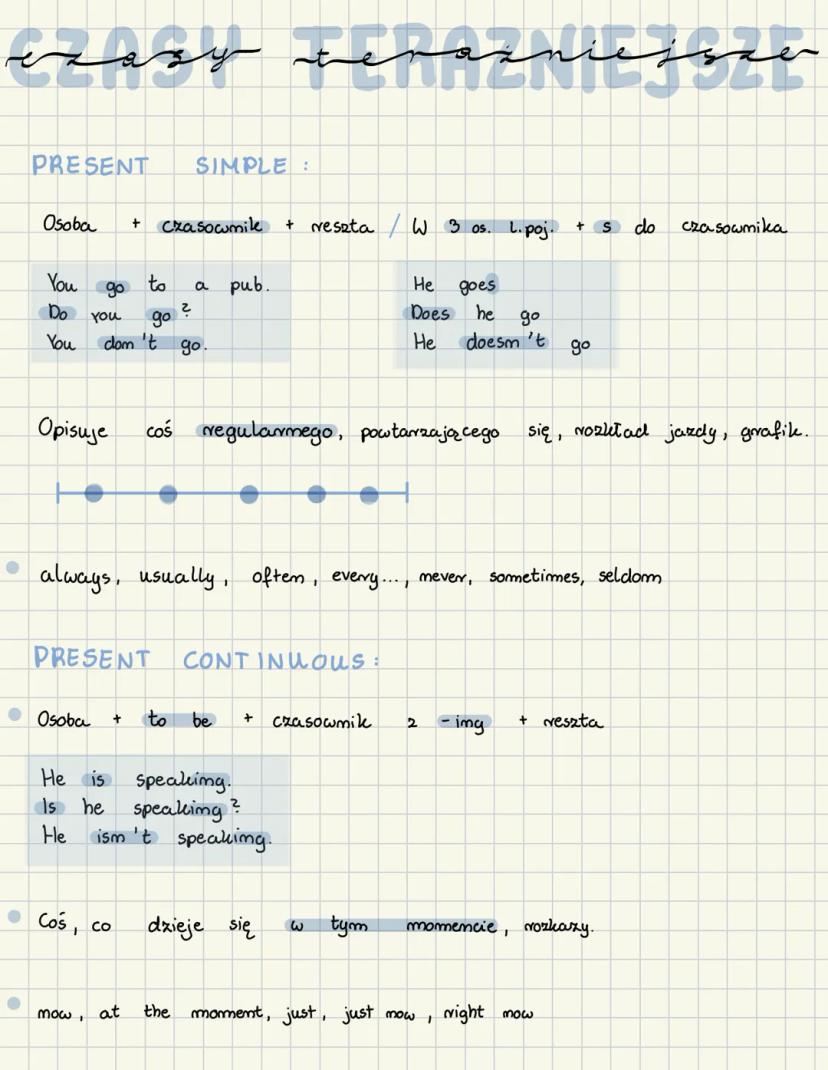 CZASY TERAŹNIEJSZE
czasy teraźniejsze
PRESENT SIMPLE:
Osoba + czasownik + reszta / W 3 os. l.poj. + s do czasownika
You go to a pub.
Do you go?
You don't go.
He goes
Does he go
He doesn't go
Opisuje coś regularnego, powtarzającego się, rozkład jazdy, grafik.
always, usually, often, every..., never, sometimes, seldom
PRESENT CONTINUOUS:
Osoba + to be + czasownik z -ing + reszta
He is speaking.
Is he speaking?
He isn't speaking.
Coś, co dzieje się w tym momencie, rozkazy.
now, at the moment, just, just now, right now